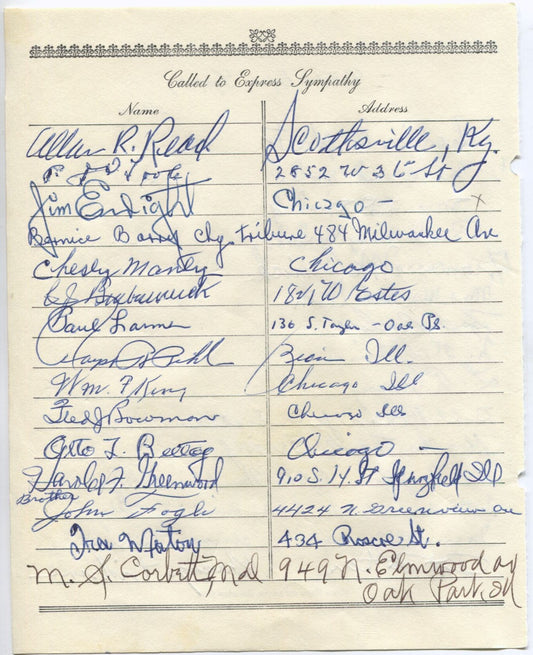 Called to Express Sympathy
Name Address
Allan R. Read Scottsville, Ky.
2852 W 36 St
Jim Enright Chicago -
Bernice Barry Chg. Tribune 484 Milwaukee Ave
Chesly Manly Chicago
1821 W Estes
Paul Larmer 136 S. Taylor - Oak Pk.
Ill.
Wm. F. King Chicago Ill
Ted J Bowman Chicago Ill
Otto T. Chicago -
Harold F. Greenwood 910 S. 14. St Springfield Ill
Brother
John Fogle 4424 N. Greenview Ave
Ira Morton 434 Roscoe St.
M. S. Corbett, Md 949 N. Elmwood av
Oak Park Ill